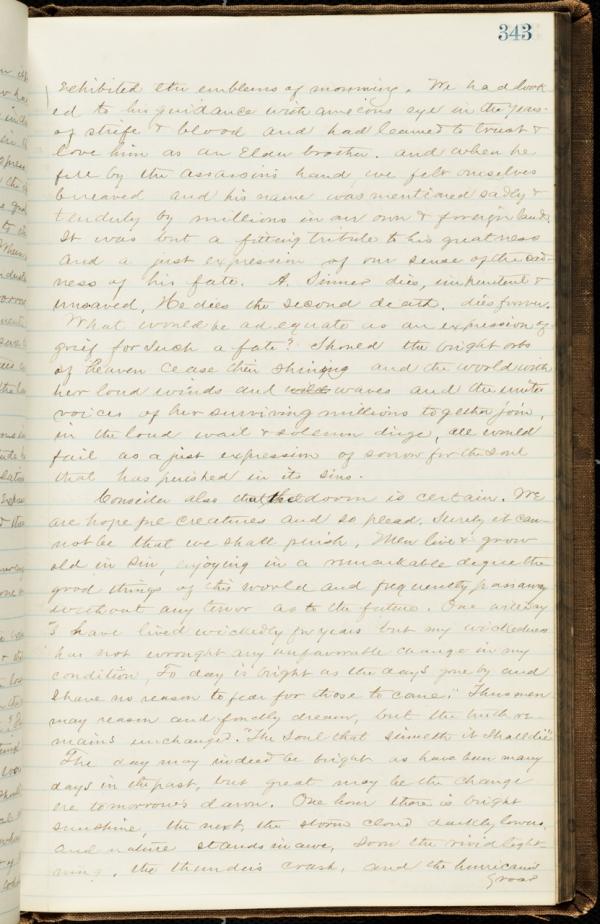 343
exhibited the emblems of mourning. We had look
ed to his guidance with anxious eye in the years
of strife & blood and had learned to trust &
love him as an Elder brother. and when he
fell by the assassins hand, we felt ourselves
bereaved and his name was mentioned sadly &
tenderly by millions in our own & foreign lands.
It was but a fitting tribute to his greatness
and a just expression of our sense of the sad-
ness of his fate. A. Sinner dies, impenitent &
unsaved, He dies the second death. dies forever.
What would be adequate as an expression of
grief for such a fate? Should the bright orbs
of Heaven cease their shining and the world with
her loud winds and wild waves and the united
voices of her surviving millions together join,
in the loud wail & solemn dirge, all would
fail as a just expression of sorrow for the soul
that has perished in its sins.
Consider also that the doom is certain. We
are hope ful creatures and so plead, Surely it can-
not be that we shall perish. Men live & grow
old in sin, enjoying in a remarkable degree the
good things of this world and frequently pass away
without any terror as to the future. One will say
"I have lived wickedly for years but my wickedness
has not wrought any unfavorable change in my
condition, To day is bright as the days gone by and
I have no reason to fear for those to come." Thus men
may reason and fondly dream, but the truth re-
mains unchanged. "The Soul that sinneth it Shall die"
The day may indeed be bright as have been many
days in the past, but great may be the change
ere tomorrow's dawn. One hour there is bright
sunshine, the next, the storm cloud darkly lowers,
and nature stands in awe, soon the vivid light-
ning, the thunders crash, and the hurricane's
roar